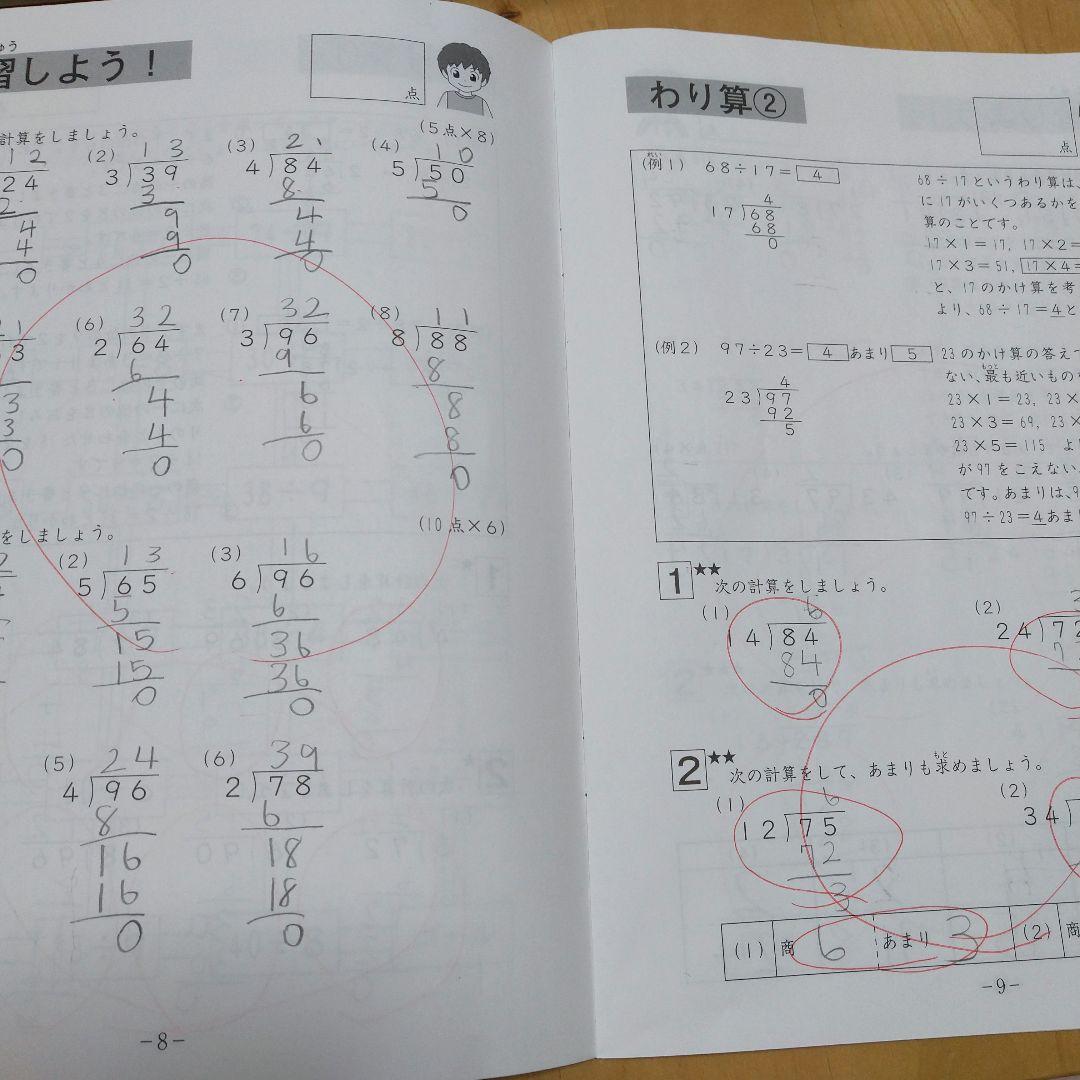 習しよう！
点
計算をしましょう。
(5点×8)
12
24
2
4
4
0
(2)
13
3)39
3
9
9
0
(3)
21
4)84
8
4
4
0
(4)
10
5)50
5
0
21
3
3
3
0
(6)
32
2)64
6
4
4
0
(7)
32
3)96
9
6
6
0
(8)
11
8)88
8
8
8
0
をしましょう。
(10点×6)
(2)
13
5)65
5
15
15
0
(3)
16
6)96
6
36
36
0
(5)
24
4)96
8
16
16
0
(6)
39
2)78
6
18
18
0
-8-
わり算②
点
(例1) 68÷17=4
4
17)68
68
0
68÷17というわり算は、
に17がいくつあるかを
算のことです。
17×1=17, 17×2=
17×3=51, 17×4=
と、17のかけ算を考
より、68÷17=4と
(例2) 97÷23=4あまり5
4
23)97
92
5
23のかけ算の答えで
ない、最も近いものを
23×1=23, 23×
23×3=69, 23×
23×5=115 よ
が97をこえない、
です。あまりは、9
97÷23=4あま
1★★ 次の計算をしましょう。
(1)
6
14)84
84
0
(2)
3
24)72
7
2★★ 次の計算をして、あまりも求めましょう。
(1)
6
12)75
72
3
(2)
34)
(1) 商 6 あまり 3 (2) 商
-9-